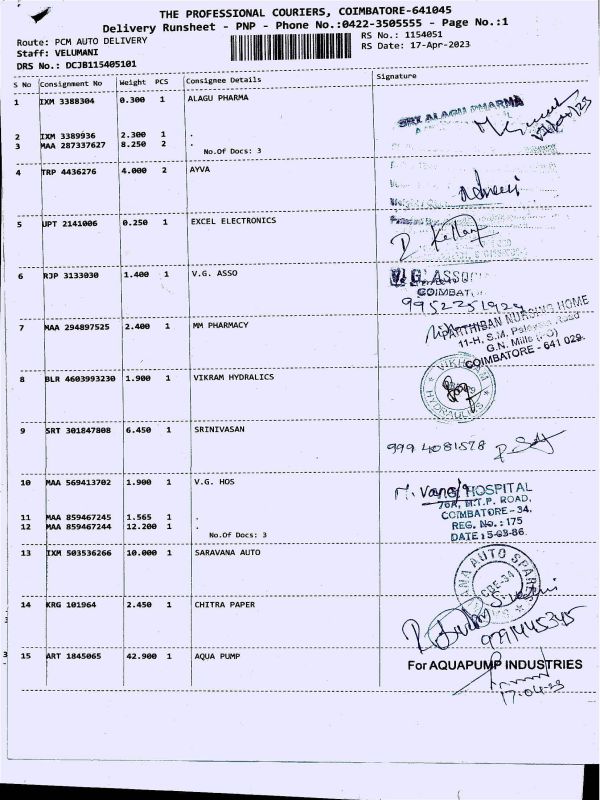 THE PROFESSIONAL COURIERS, COIMBATORE-641045
Delivery Runsheet - PNP - Phone No.:0422-3505555 - Page No.:1
Route: PCM AUTO DELIVERY
Staff: VELUMANI
DRS No.: DCJB115405101
RS No.: 1154051
RS Date: 17-Apr-2023
S No Consignment No Weight PCS Consignee Details Signature
1 IXM 3388304 0.300 1 ALAGU PHARMA
SRI ALAGU PHARMA
2 IXM 3389936 2.300 1 .
3 MAA 287337627 8.250 2 .
No.Of Docs: 3
4 TRP 4436276 4.000 2 AYVA
5 UPT 2141006 0.250 1 EXCEL ELECTRONICS
6 RJP 3133030 1.400 1 V.G. ASSO
V.G. ASSO
COIMBAT
7 MAA 294897525 2.400 1 MM PHARMACY
PARTHIBAN NURSING HOME
11-H, S.M. Road
G.N. Mills
COIMBATORE - 641 029.
8 BLR 4603993230 1.900 1 VIKRAM HYDRALICS
9 SRT 301847808 6.450 1 SRINIVASAN
999 4081578
10 MAA 569413702 1.900 1 V.G. HOS
HOSPITAL
M.T.P. ROAD,
COIMBATORE - 34.
REG. No.: 175
DATE: 5-03-86
11 MAA 859467245 1.565 1 .
12 MAA 859467244 12.200 1 .
No.Of Docs: 3
13 IXM 503536266 10.000 1 SARAVANA AUTO
14 KRG 101964 2.450 1 CHITRA PAPER
15 ART 1845065 42.900 1 AQUA PUMP
For AQUAPUMP INDUSTRIES
17-04-23